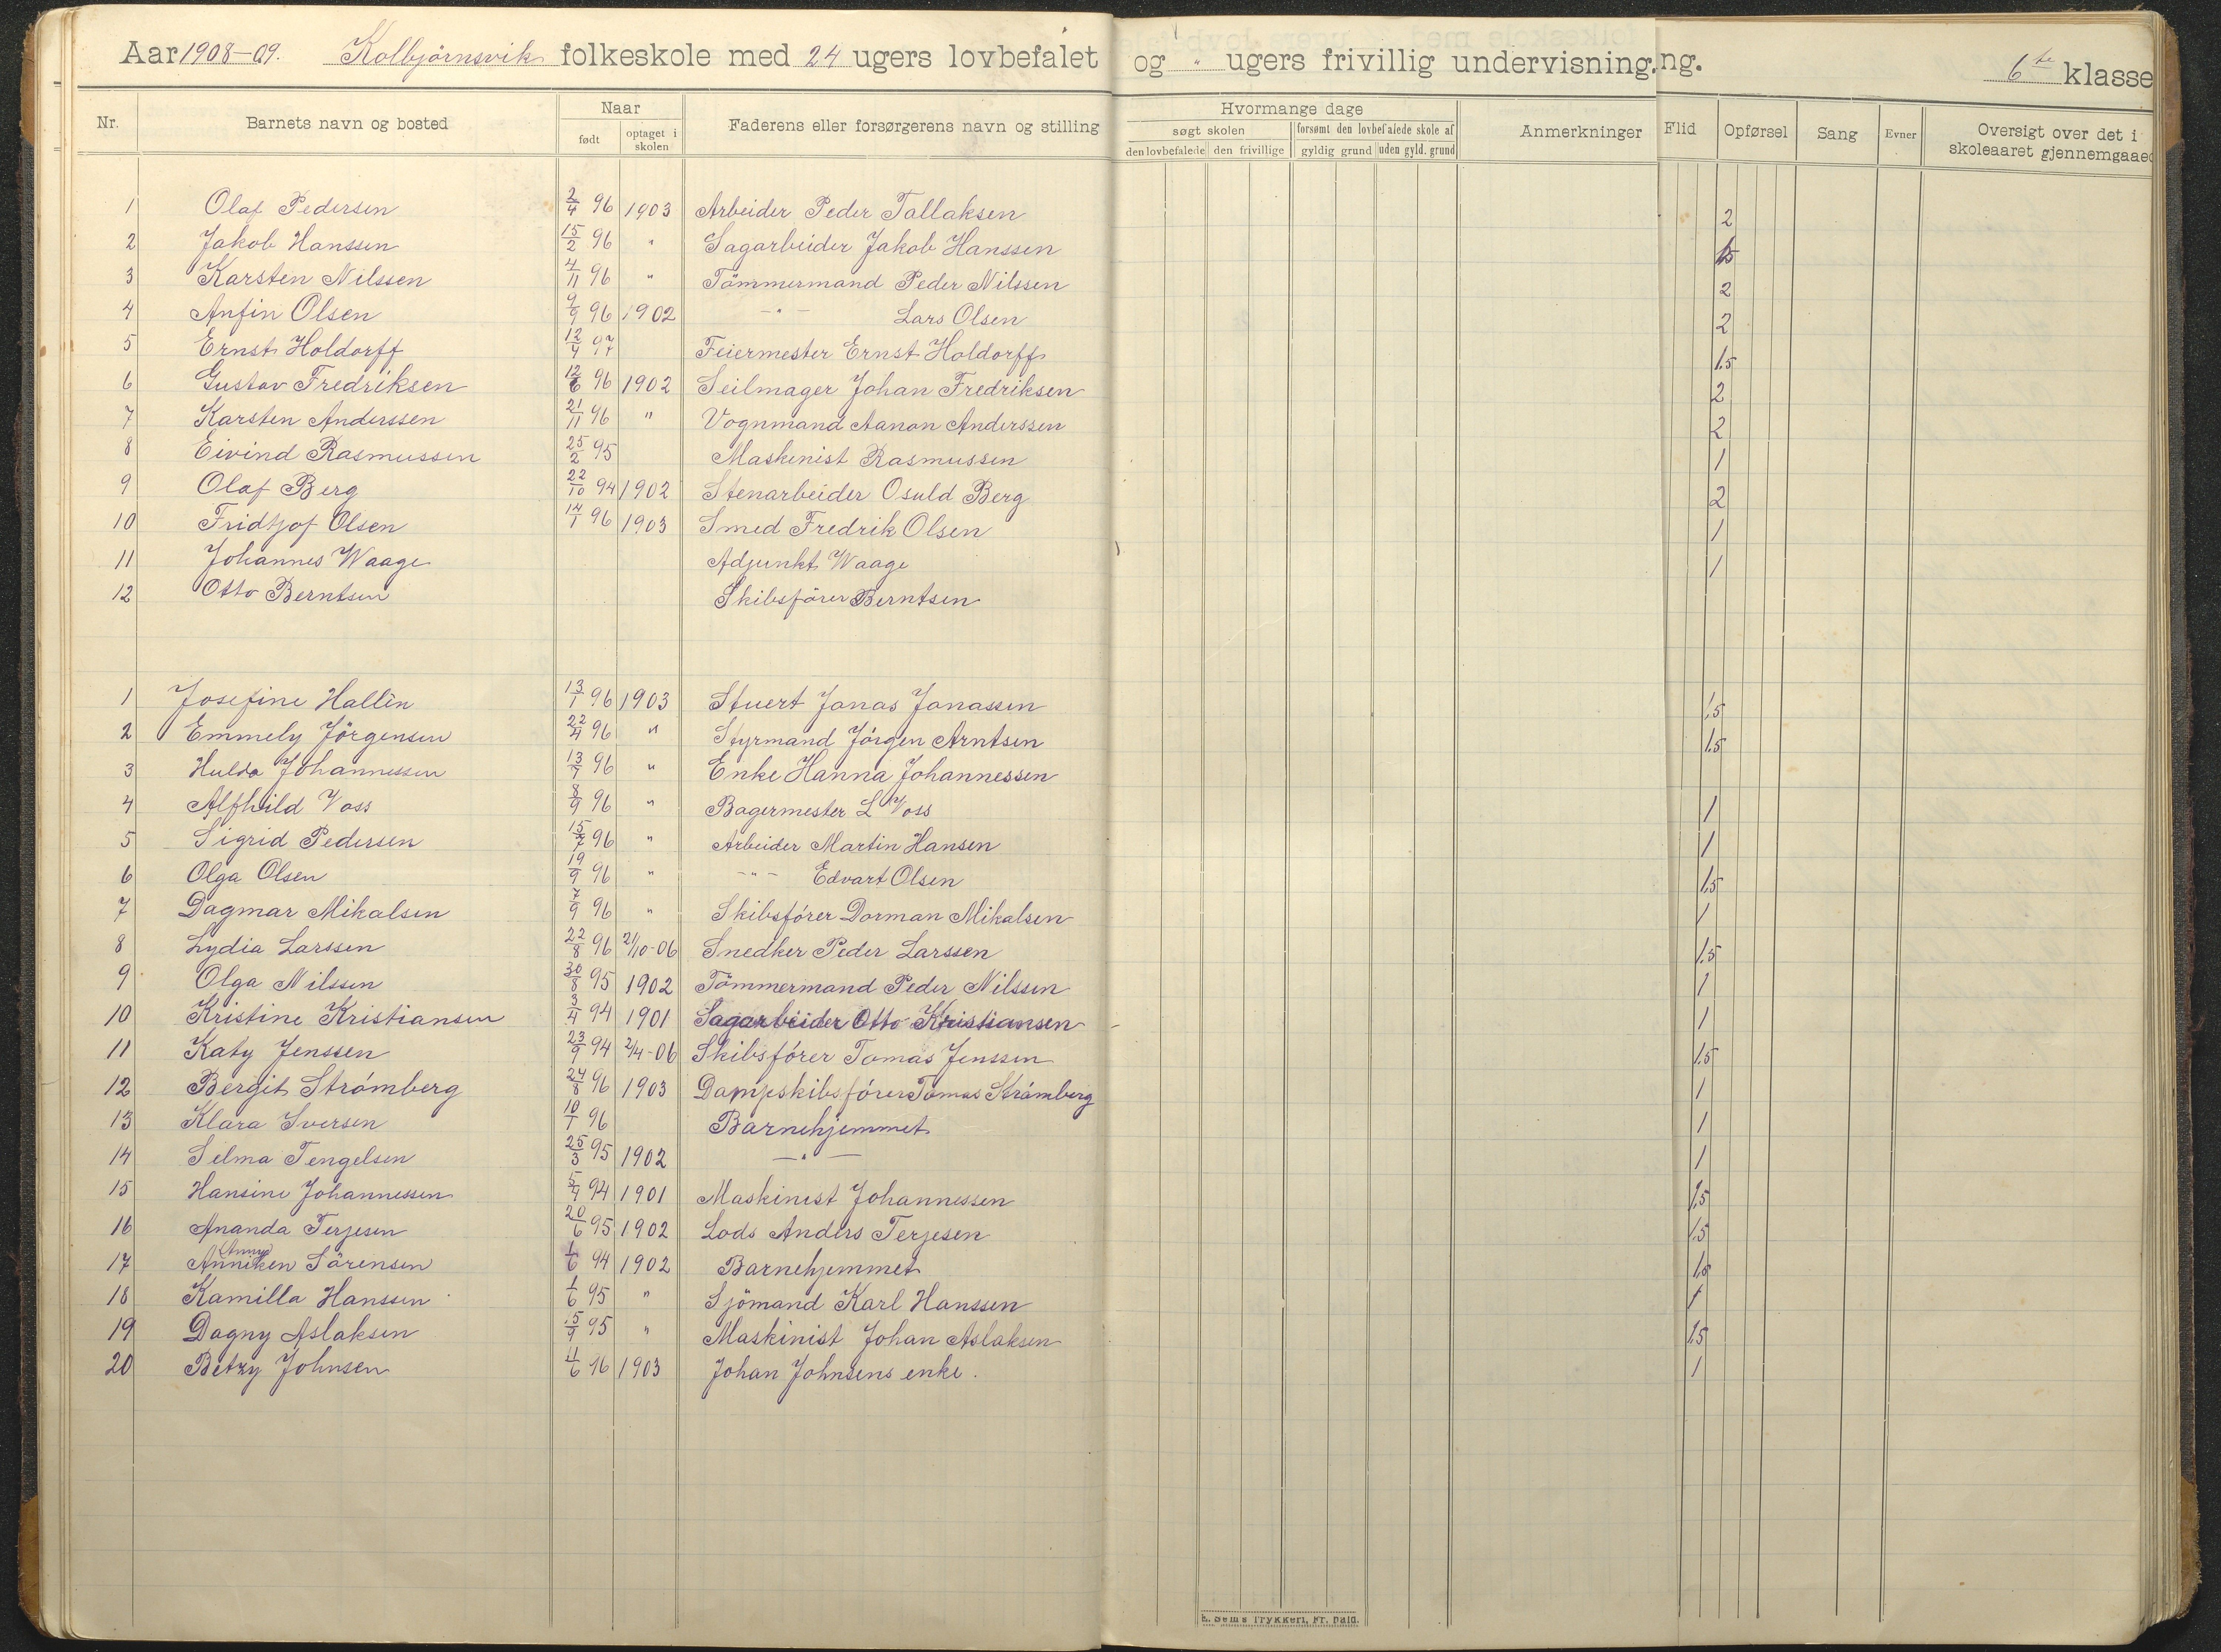 Aar 1908-09. Kolbjörnsvik folkeskole med 24 ugers lovbefalet og " ugers frivillig undervisning. ng. 6te klasse
Nr. Barnets navn og bosted Naar født optaget i skolen Faderens eller forsørgerens navn og stilling Hvormange dage søgt skolen den lovbefalede den frivillige forsømt den lovbefalede skole af gyldig grund uden gyld. grund Anmerkninger Flid Opførsel Sang Evner Oversigt over det i skoleaaret gjennemgaaed
1 Olaf Pedersen 2/4 96 1903 Arbeider Peder Tallaksen 2
2 Jakob Hanssen 15/2 96 " Sagarbeider Jakob Hanssen 1.5
3 Karsten Nilssen 4/11 96 " Tömmermand Peder Nilssen 2
4 Anfin Olsen 9/9 96 1902 - " - Lars Olsen 2
5 Ernst Holdorff 12/4 97 Feiermester Ernst Holdorff 1.5
6 Gustav Fredriksen 12/6 96 1902 Seilmager Johan Fredriksen 2
7 Karsten Anderssen 21/11 96 " Vognmand Aanon Anderssen 2
8 Eivind Rasmussen 25/2 95 Maskinist Rasmussen 1
9 Olaf Berg 22/10 94 1902 Stenarbeider Osuld Berg 2
10 Fridtjof Olsen 14/1 96 1903 Smed Fredrik Olsen 1
11 Johannes Waage Adjunkt Waage 1
12 Otto Berntsen Skibsförer Berntsen
1 Josefine Hallèn 13/1 96 1903 Stuert Jonas Jonassen 1.5
2 Emmely Jörgensen 22/4 96 " Styrmand Jörgen Arntsen 1.5
3 Hulda Johannessen 13/7 96 " Enke Hanna Johannessen
4 Alfhild Voss 8/9 96 " Bagermester L Voss 1
5 Sigrid Pedersen 15/7 96 " Arbeider Martin Hansen 1
6 Olga Olsen 19/9 96 " - " - Edvart Olsen 1.5
7 Dagmar Mikalsen 7/9 96 " Skibsförer Dorman Mikalsen 1
8 Lydia Larssen 22/8 96 21/10-06 Snedker Peder Larssen 1.5
9 Olga Nilssen 30/8 95 1902 Tömmermand Peder Nilssen 1
10 Kristine Kristiansen 3/4 94 1901 Sagarbeider Otto Kristiansen 1
11 Katy Jenssen 23/9 94 2/4-06 Skibsförer Tomas Jenssen 1.5
12 Bergit Strömberg 24/8 96 1903 Dampskibsförer Tomas Strömberg 1
13 Klara Iversen 10/1 96 Barnehjemmet 1
14 Selma Tengelsen 25/3 95 1902 - " - 1
15 Hansine Johannessen 5/9 94 1901 Maskinist Johannessen 1.5
16 Ananda Terjesen 20/6 95 1902 Lods Anders Terjesen 1.5
(Anny)
17 Anneken Sörensen 1/6 94 1902 Barnehjemmet 1.5
18 Kamilla Hanssen 1/6 95 " Sjömand Karl Hanssen 1
19 Dagny Aslaksen 15/9 95 " Maskinist Johan Aslaksen 1.5
20 Betzy Johnsen 4/6 96 1903 Johan Johnsens enke. 1
E. Sem's Trykkeri, Fr. hald.